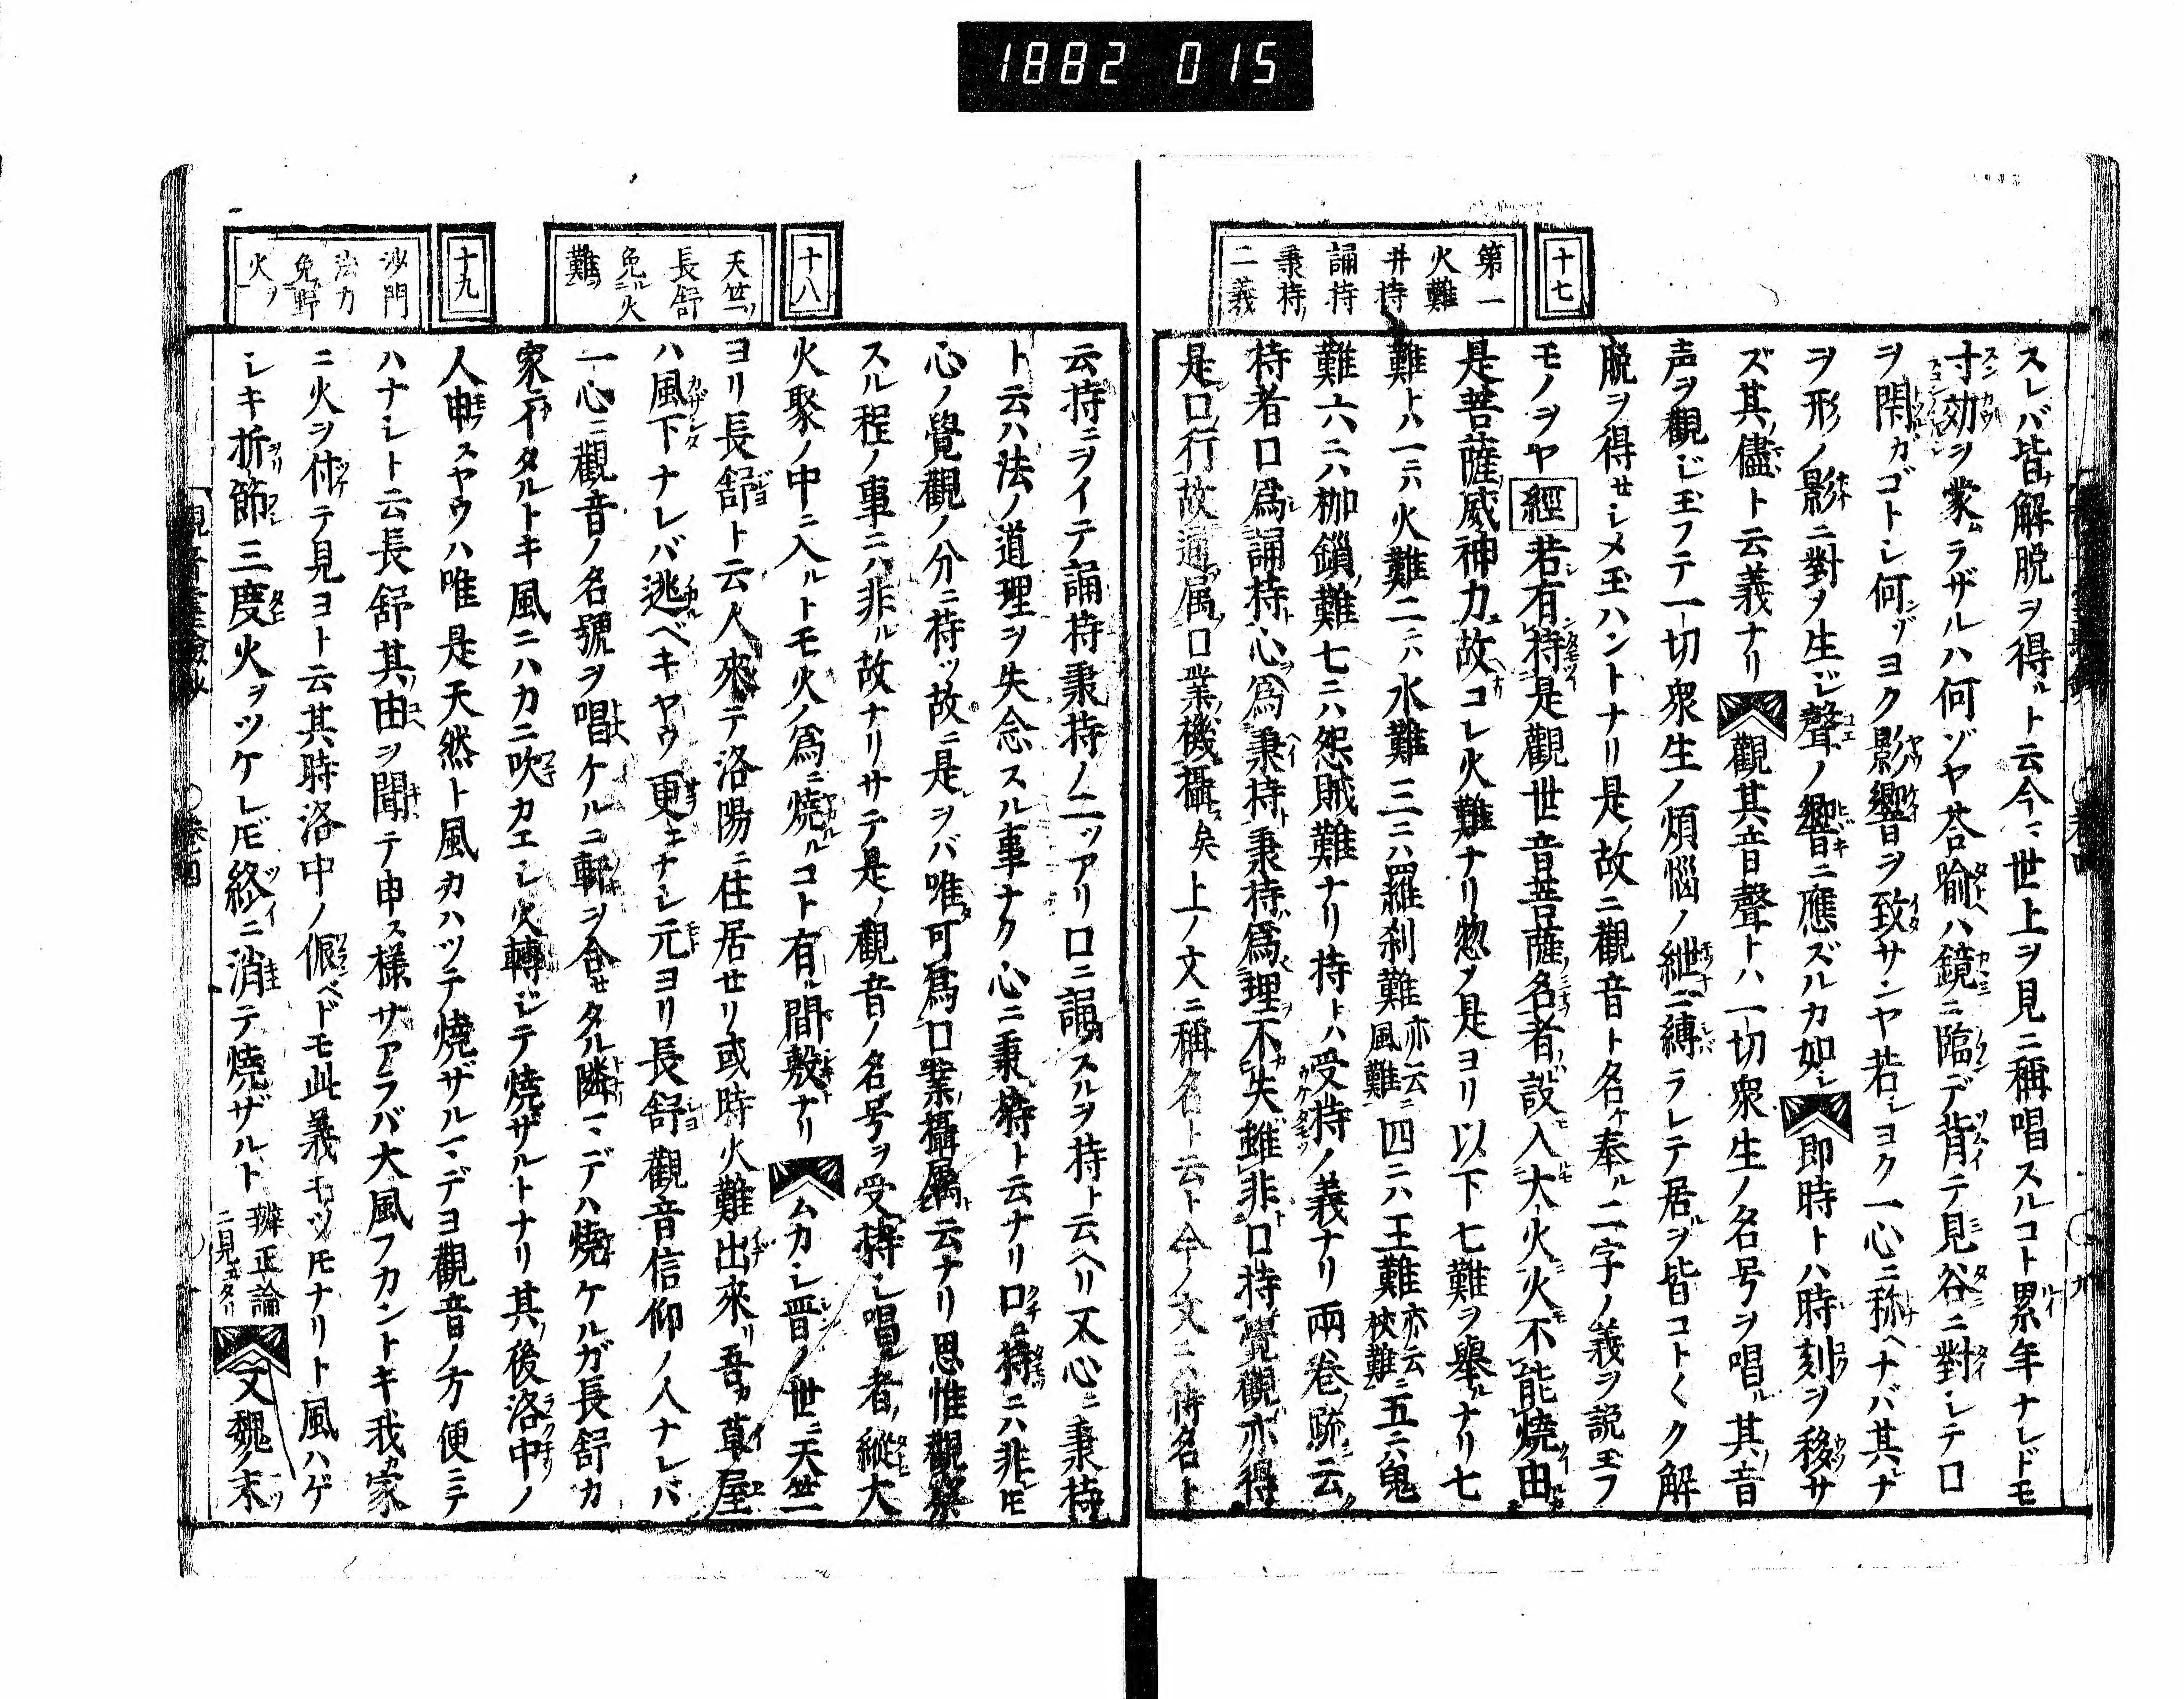 1882 015
十七
第一
火難
并持
誦持
秉持ノ
二義
スレバ皆解脱ヲ得ルト云今ニ世上ヲ見ニ稱唱スルコト累年ナレドモ
寸効ヲ蒙ムラザルハ何ゾヤ荅喩ハ鏡ニ臨デ背ニテ見谷ニ對シテ口
ヲ閇ルガゴトシ何ゾヨク影響ヲ致サンヤ若シヨク一心ニ称ヘナバ其ナ
ヲ形ノ影ニ對ヲ生ジ聲ノ響ニ應ズルカ如シ即時トハ時刻ヲ移サ
ズ其儘ト云義ナリ觀其音聲トハ一切衆生ノ名号ヲ唱ル其ノ音
声ヲ觀ジ玉フテ一切衆生ノ煩惱ノ紲ニ縛ラレテ居ルヲ皆コト〱ク解
脱ヲ得セシメ玉ハントナリ是故ニ觀音ト名ケ奉ル二字ノ義ヲ説玉フ
モノヲヤ經若有持是觀世音菩薩名者設入大火火不能燒由
是菩薩威神力故コレ火難ナリ惣ヲ是ヨリ以下七難ヲ舉ルナリ七
難トハ一ニハ火難二ニハ水難三ニハ羅刹難亦云風難四ニハ王難亦云杖難五ニハ鬼
難六ニハ枷鎖難七ニハ怨賊難ナリ持トハ受持ノ義ナリ兩巻ノ疏ニ云ク
持者口爲誦持心爲秉持秉持爲理不失雖非口持覺觀亦得
是口行故通属口業機攝矣上ノ文ニ稱名ト云ト今ノ文ニ持名ト
云持ニヲイテ誦持秉持ノ二ツアリ口ニ誦スルヲ持ト云ヘリ又心ニ秉持
ト云ハ法ノ道理ヲ失念スル事ナク心ニ秉持ト云ナリ口ニ持ニハ非レ𪜈
心ノ覺觀ノ分ニ待ツ故ニ是ヲバ唯可爲口業攝属ト云ナリ思惟觀察
スル程ノ事ニハ非ル故ナリサテ是ノ觀音ノ名号ヲ受持シ唱者ノ縱大
火聚ノ中ニ入ルトモ火ノ爲ニ燒ルコト有ル間敷ナリムカシ晋ノ世ニ天竺
ヨリ長舒ト云人來テ洛陽ニ住居セリ或時火難出來リ吾カ草屋
ハ風下ナレバ逃ベキヤウ更ニナシ元ヨリ長舒觀音信仰ノ人ナレバ
一心ニ觀音ノ名號ヲ唱ケルニ軒ヲ合セタル隣マデハ燒ケルガ長舒カ
家ニイタルトキ風ニハカニ吹カエシ火轉ジテ燒ザルトナリ其ノ後洛中ノ
人申スヤウハ唯是天然ト風カハツテ燒ザルマデヨ觀音ノ方便ニテ
ハナシト云長舒其ノ由ヲ聞テ申ス樣サアラバ大風フカントキ我家
ニ火ヲ付テ見ヨト云其時洛中ノ侲ベドモ此義モツ𪜈ナリト風ハゲ
シキ折節三度火ヲツケレ𪜈終ニ消テ燒ザルト辨正論ニ見エタリ又魏ノ末
十八
天竺ノ
長舒
免ル火
難ヲ
十九
沙門
法力
免ル野
火ヲ
觀音霊驗鈔 巻四